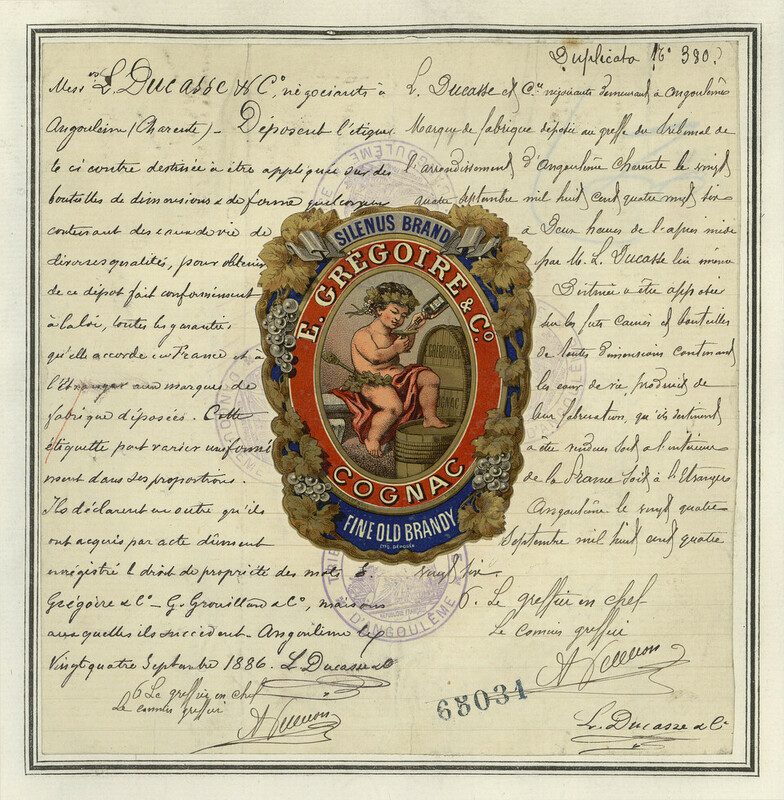 Duplicata N° 380.
Mess rs L. Ducasse & C°, négociants à
Angoulême (Charente) – Déposent l'étiquet
te ci contre destinée à être appliquée sur des
bouteilles de dimensions & de forme quelconques
contenant des eaux de vie de
diverses qualités, pour obtenir
de ce dépot fait conformément
à la loi, toutes les garanties
qu'elle accorde en France et à
l'Etranger aux marques de
fabrique déposées. Cette
étiquette peut varier uniformé
ment dans ses proportions.
Ils déclarent en outre qu'ils
ont acquis par acte dûment
enregistré le droit de propriété des mots E.
Grégoire & C° – G. Grouillard & C°, maisons
auxquelles ils succèdent. Angoulême le
Vingt quatre Septembre 1886. L. Ducasse & C°
6 Le greffier en chef
Le commis greffier
L. Ducasse et Cie négociants demeurant à Angoulême
Marque de fabrique déposée au greffe du tribunal de
l'arrondissement d'Angoulême Charente le vingt
quatre septembre mil huit cent quatre vingt six
à Deux heures de l'après midi
par M. L. Ducasse lui même
Destinée à être apposée
sur les futs caisses et bouteilles
de toutes dimensions contenant
les eaux de vie, produits de
leur fabrication, qu'ils destinent
à être vendues soit à l'intérieur
de la France soit à l'Etranger
Angoulême le vingt quatre
Septembre mil huit cent quatre
vingt six.
6. Le greffier en chef
Le commis greffier
65031
L. Ducasse & C°
SILENUS BRAND
E. GRÉGOIRE & C°
COGNAC
FINE OLD BRANDY
COGNAC
D'ANGOULÊME